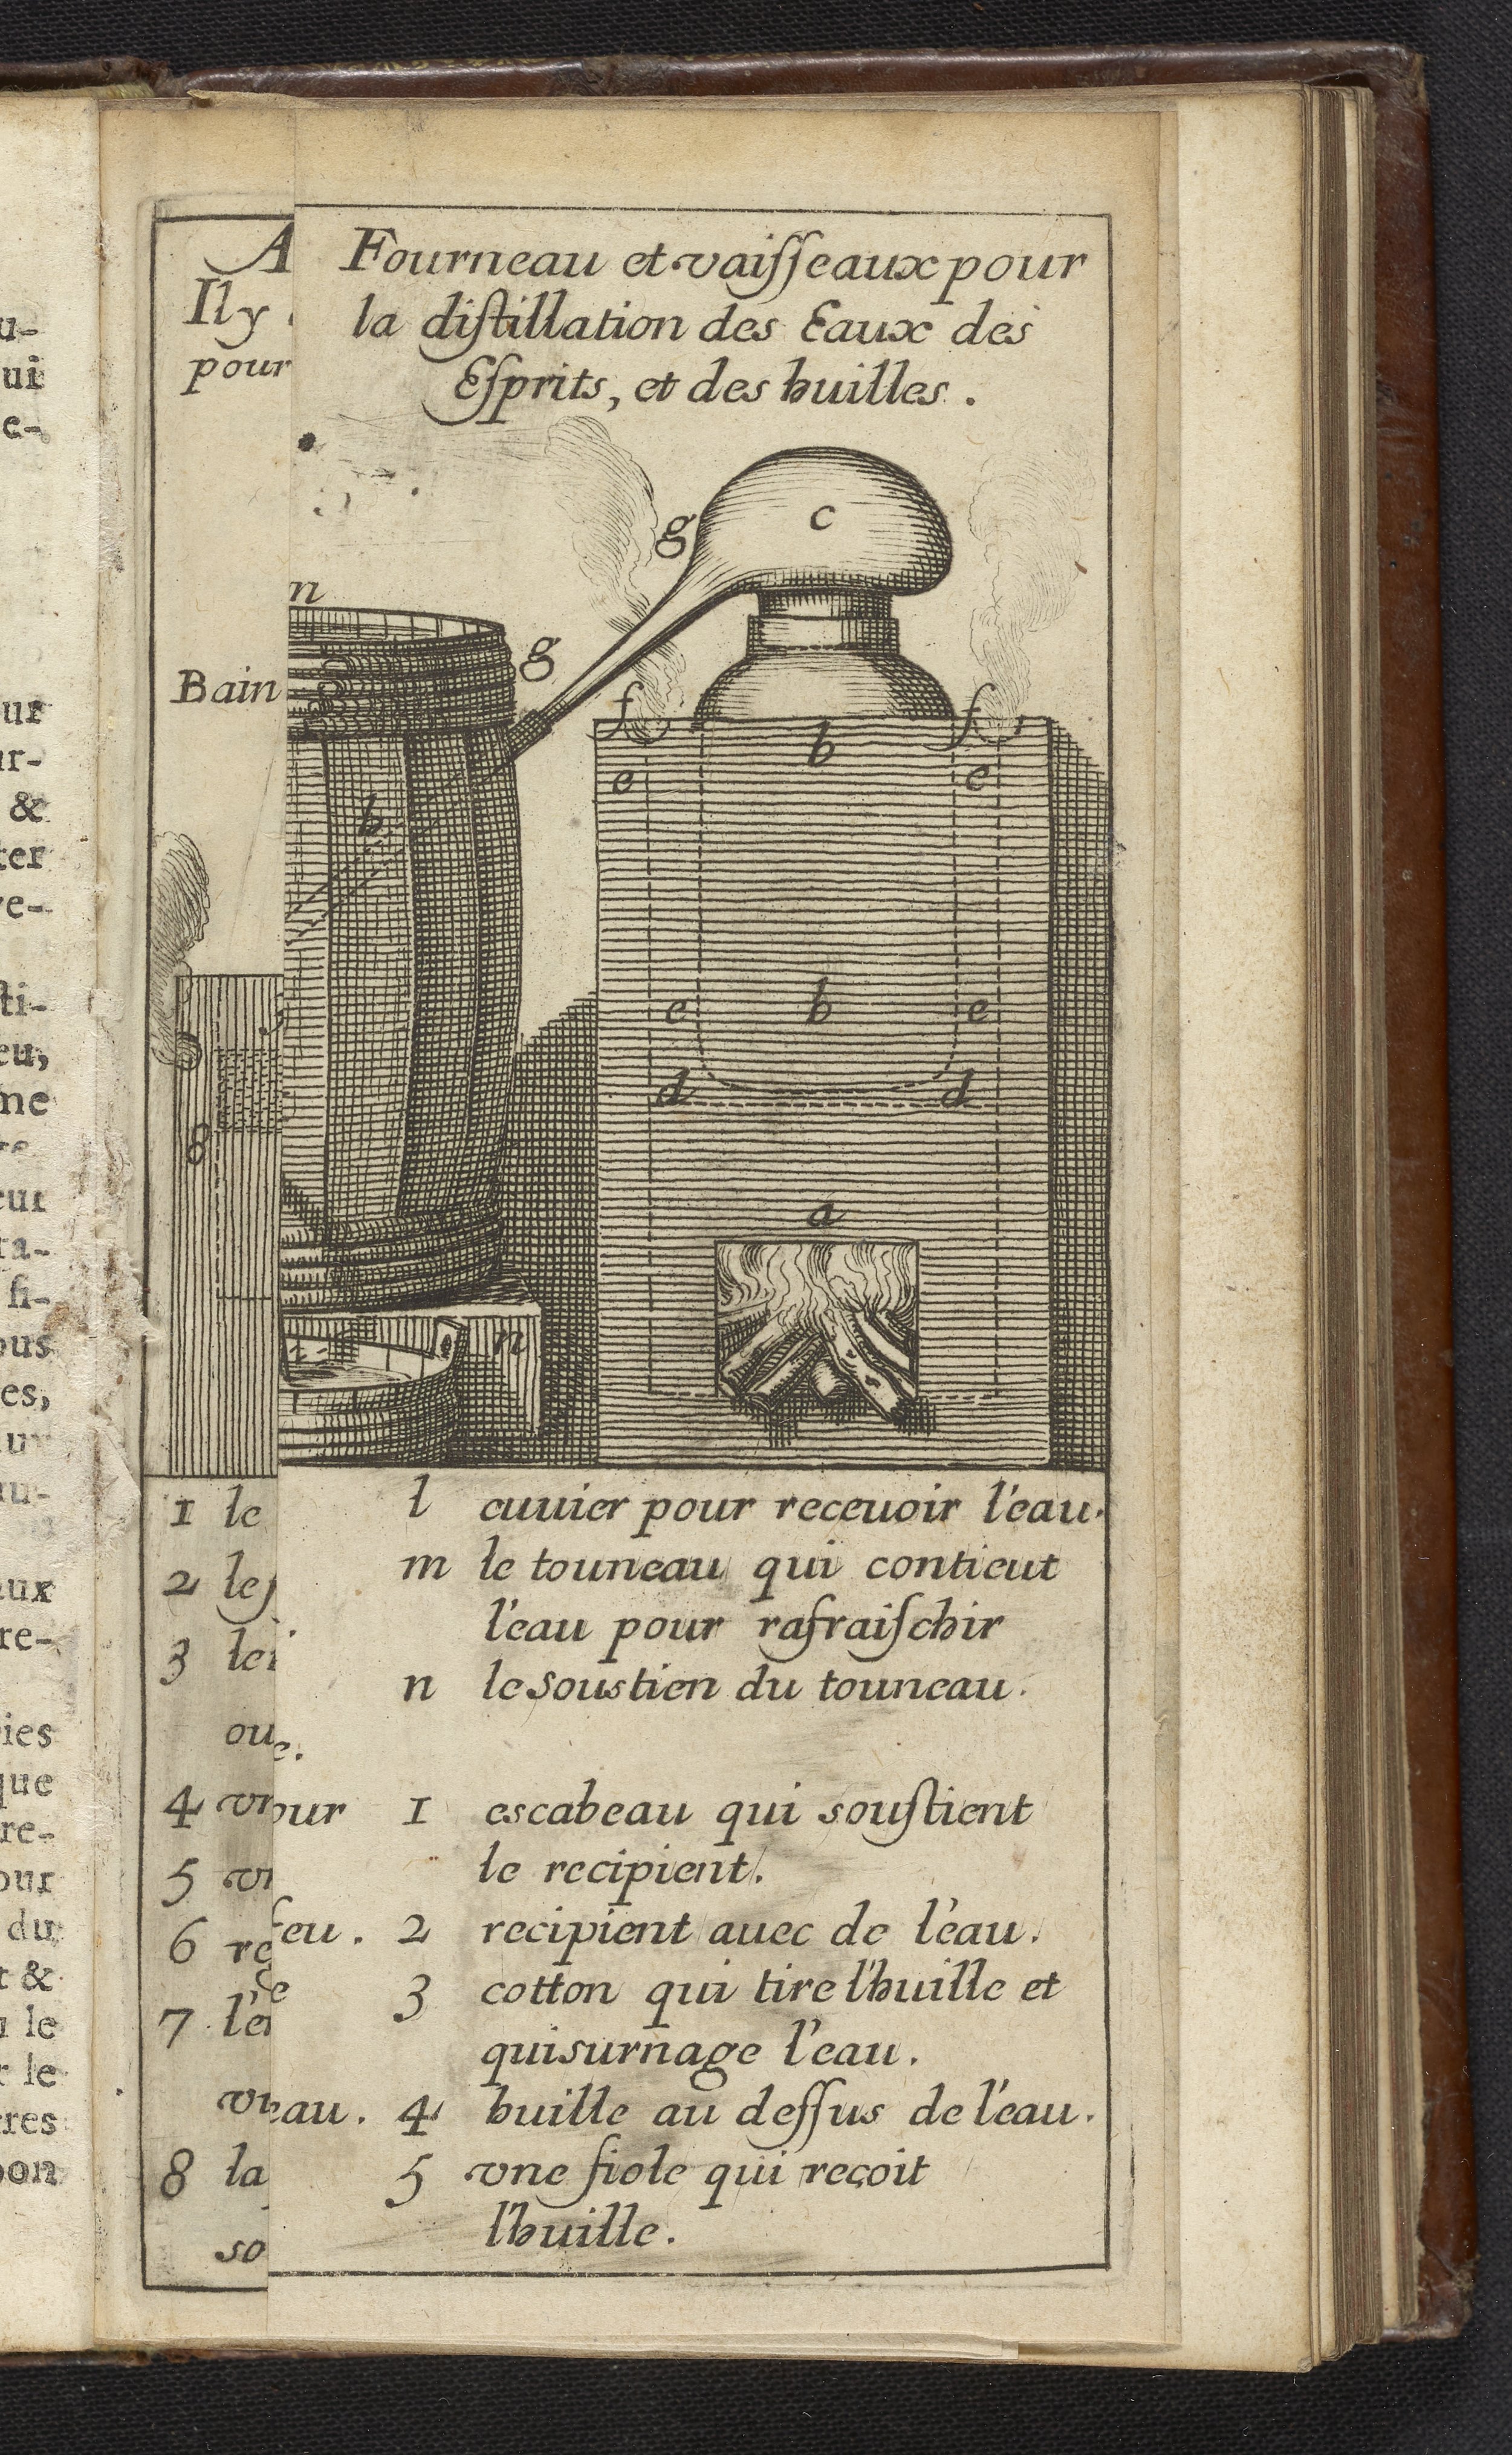 A
Il y
pour
Fourneau et vaiſſeaux pour
la diſtillation des Eaux des
Eſprits, et des huilles.
c
g
n
g
Bain
f
f
b
e
e
b
e
b
e
d
d
8
a
n
1 le
2
3
ou
4
5
6
7
8 la
so
l cuuier pour receuoir l'eau.
m le touneau qui contieut
l'eau pour rafraiſchir
n le soustien du touneau.
e.
our
1 escabeau qui souſtient
le recipient.
feu. 2 recipient auec de l'eau.
de
3 cotton qui tire l'huille et
qui surnage l'eau.
eau. 4 huille au deſſus de l'eau.
5 vne fiole qui reçoit
l'huille.
u-
ui
e-
ur
ur-
&
ter
re-
ſti-
eu,
me
eur
ra-
ſi-
ous
es,
au-
aux
re-
ies
que
re-
our
du
t &
u le
r le
res
bon